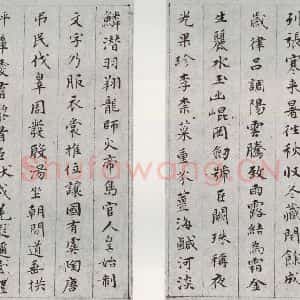 列張寒來暑往秋收冬藏閏餘成
歲律呂調陽雲騰致雨露結為霜金
生麗水玉出崐岡劍號巨闕珠稱夜
光果珍李柰菜重芥薑海鹹河淡
鱗潛羽翔龍師火帝鳥官人皇始制
文字乃服衣裳推位讓國有虞陶唐
弔民伐辠周發殷湯坐朝問道垂拱
平章愛育黎首臣伏戎羌遐邇壹
Shufawang.CN